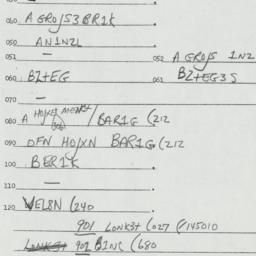 040 A GRO/S3BR1K
050 AN1NZL
051 — 052 A GRO/S 1NZ
060 BZ+EG 061 BZ+EG3S
070 —
080 A HO/XN / BAR1G (212
090 DFN HO/XN BAR1G (212
100 BER1K
110 —
120 WEL8N (240
901 LONK3+ (027 (/145010
901 B1NG (680